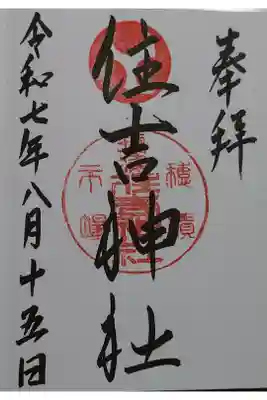 奉拝
住吉神社
令和七年八月十五日